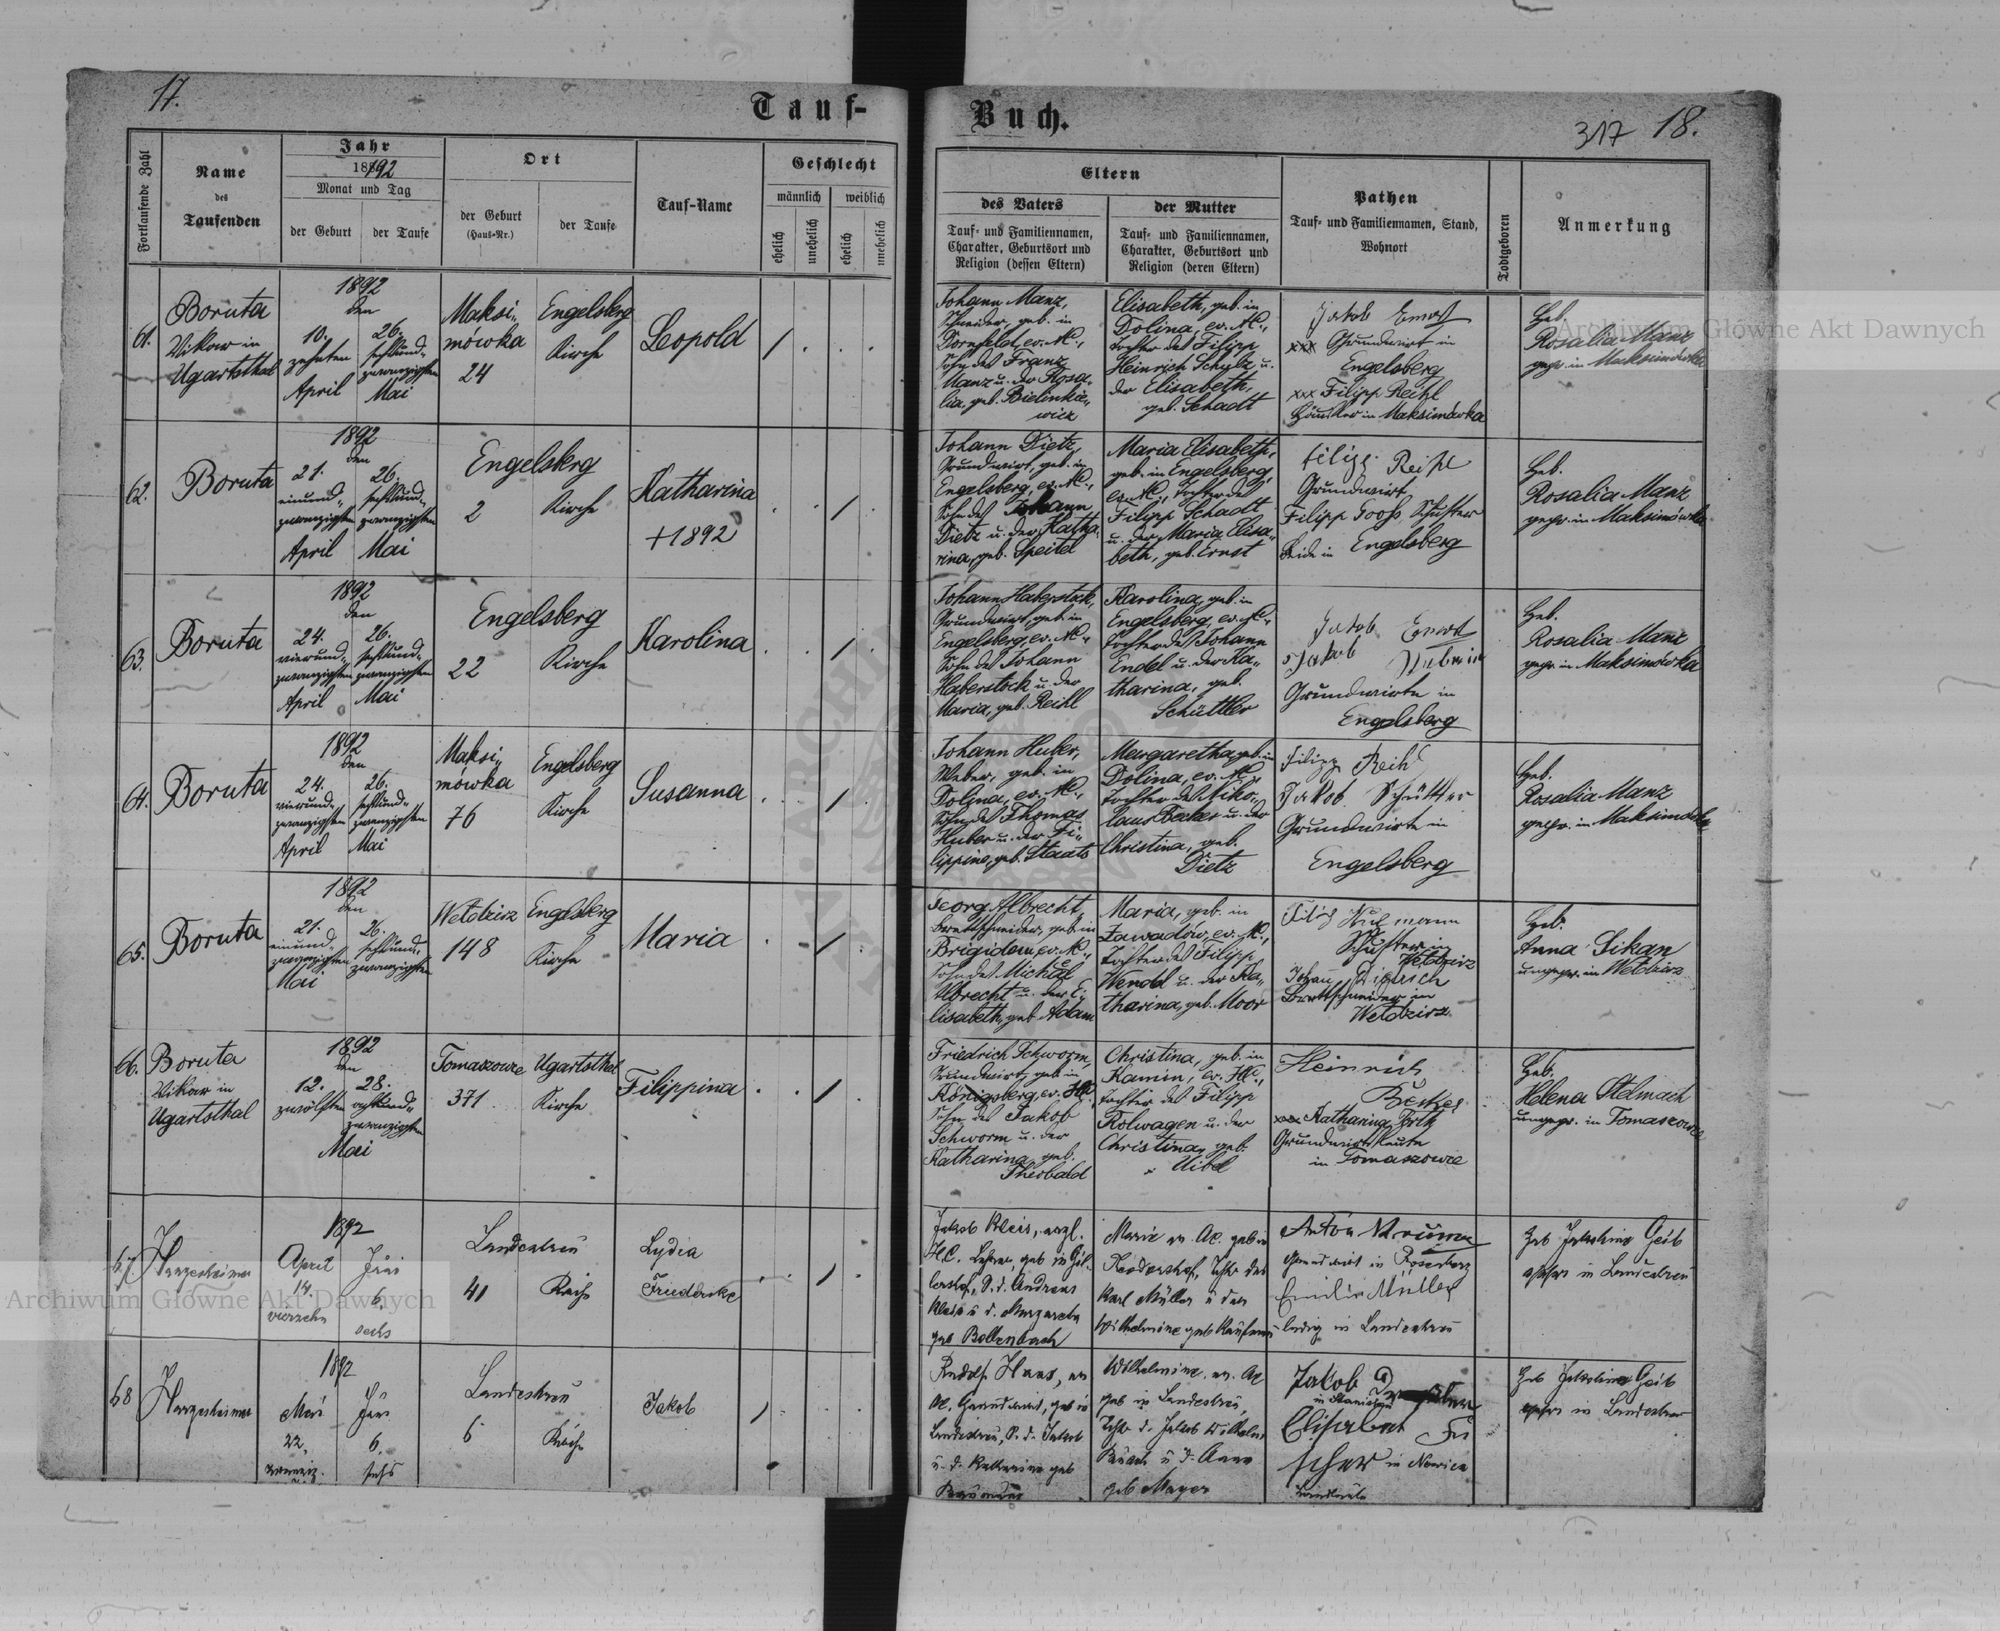 17.
Tauf-
Buch.
317 18.
Fortlaufende Zahl
Name
des
Taufenden
Jahr
1892
Monat und Tag
der Geburt
der Taufe
Ort
der Geburt
(Haus-Nr.)
der Taufe
Tauf-Name
Geschlecht
männlich
weiblich
ehelich
unehelich
ehelich
unehelich
Eltern
des Vaters
Tauf- und Familiennamen,
Charakter, Geburtsort und
Religion (dessen Eltern)
der Mutter
Tauf- und Familiennamen,
Charakter, Geburtsort und
Religion (deren Eltern)
Pathen
Tauf- und Familiennamen, Stand,
Wohnort
Todtgeboren
Anmerkung
61.
Boruta
Vikar in
Ugartsthal
1892
den
10.
zehnten
April
26.
sechsund-
zwanzigsten
Mai
Maksi-
mówka
24
Engelsberg
Kirche
Leopold
Johann Manz,
Schneider, geb. in
Dornfeld, ev. A.C.,
Sohn des Franz
Manz u. der Rosa-
lia, geb. Bielinkie-
wicz
Elisabeth, geb. in
Dolina, ev. A.C.,
Tochter des Filipp
Heinrich Schulz u.
der Elisabeth,
geb. Schadt
Jakob Ernst
xxx Grundwirt in
Engelsberg
xxx Filipp Reihl
Häusler in Maksimówka
Heb.
Rosalia Manz
gepr. in Maksimówka
62.
Boruta
1892
den
21.
einund-
zwanzigsten
April
26.
sechsund-
zwanzigsten
Mai
Engelsberg
2
Kirche
Katharina
+1892
Johann Dietz,
Grundwirt, geb. in
Engelsberg, ev. A.C.,
Sohn des Johann
Dietz u. der Katha-
rina, geb. Speitel
Maria Elisabeth,
geb. in Engelsberg,
ev. A.C., Tochter des
Filipp Schadt
u. der Maria Elisa-
beth, geb. Ernst
Filipp Reihl
Grundwirt
Filipp Jooss Schuster
Beide in Engelsberg
Heb.
Rosalia Manz
gepr. in Maksimówka
63.
Boruta
1892
den
24.
vierund-
zwanzigsten
April
26.
sechsund-
zwanzigsten
Mai
Engelsberg
22
Kirche
Karolina
Johann Haberstock,
Grundwirt, geb. in
Engelsberg, ev. A.C.,
Sohn des Johann
Haberstock u. der
Maria, geb. Reihl
Karolina, geb. in
Engelsberg, ev. A.C.,
Tochter des Johann
Endel u. der Ka-
tharina, geb.
Schüttler
Jakob Ernst
Jakob
Grundwirte in
Engelsberg
Heb.
Rosalia Manz
gepr. in Maksimówka
64.
Boruta
1892
den
24.
vierund-
zwanzigsten
April
26.
sechsund-
zwanzigsten
Mai
Maksi-
mówka
76
Engelsberg
Kirche
Susanna
Johann Huber,
Weber, geb. in
Dolina, ev. A.C.,
Sohn des Thomas
Huber u. der Fi-
lippina, geb. Staats
Margaretha, geb. in
Dolina, ev. A.C.,
Tochter des Niko-
laus Becker u. der
Christina, geb.
Dietz
Filipp Reihl
Jakob Schüttler
Grundwirte in
Engelsberg
Heb.
Rosalia Manz
gepr. in Maksimówka
65.
Boruta
1892
den
21.
einund-
zwanzigsten
Mai
26.
sechsund-
zwanzigsten
Wełdzirz
148
Engelsberg
Kirche
Maria
Georg Albrecht,
Brettschneider, geb. in
Brigidau, ev. A.C.,
Sohn des Michael
Albrecht u. der E-
lisabeth, geb. Adam
Maria, geb. in
Zawadów, ev. A.C.,
Tochter des Filipp
Wendel u. der Ka-
tharina, geb. Moor
Schuster in
Wełdzirz
Johann
Brettschneider in
Wełdzirz
Heb.
Anna Sikan
ungepr. in Wełdzirz
66.
Boruta
Vikar in
Ugartsthal
1892
den
12.
zwölften
28.
achtund-
zwanzigsten
Mai
Tomaszowce
371
Ugartsthal
Kirche
Filippina
Friedrich Schworm,
Grundwirt, geb. in
Königsberg, ev. H.C.,
Sohn des Jakob
Schworm u. der
Katharina, geb.
Theobald
Christina, geb. in
Kamin, ev. H.C.,
Tochter des Filipp
Kolwagen u. der
Christina, geb.
Uibel
Heinrich
Becker
xxx Katharina
Grundwirtsleute
in Tomaszowce
Heb.
Helena Stelmach
ungepr. in Tomaszowce
67
Harzesheimer
1892
April
14.
vierzehn
Juni
6.
sechs
Landestreu
41
Kirche
Lydia
Friederike
Jakob Kleis, evgl.
H.C. Lehrer, geb in
S. d. Andreas
Kleis u. d. Margareta
geb Bollenbach
Maria ev. A.C. geb in
Tocht. des
Karl Müller u der
Wilhelmine geb Kaufman
Anton
Grundwirt in
Emilie Müller
ledig in Landestreu
Heb Jakobina Geib
gepr in Landestreu
68
Harzesheimer
1892
Mai
22.
Juni
6.
sechs
Landestreu
6
Kirche
Jakob
Rudolf Haas, ev
A.C. Grundwirt, geb in
Landestreu, S. d. Jakob
u. d. Katharina geb
Wilhelmine ev. A.C.
geb in Landestreu,
Tocht. d. Jakob Wilhelm
u d. Anna
geb Mayer
Jakob
Elisabet Fi
scher in Nowica
Heb Jakobina Geib
gepr in Landestreu
Archiwum Główne Akt Dawnych
Archiwum Główne Akt Dawnych